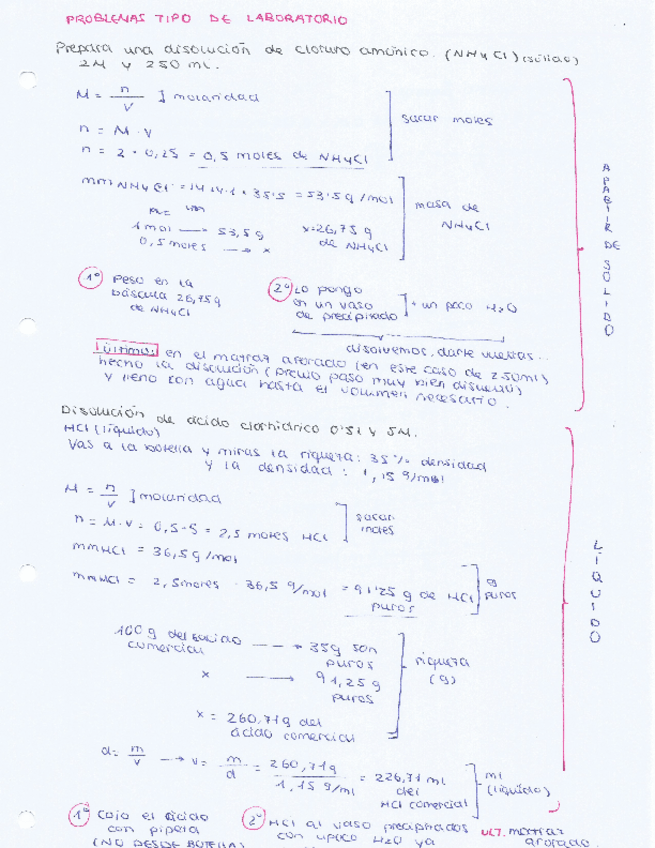 PROBLEMAS TIPO DE LABORATORIO
Prepara una disolución de cloruro amónico. (NH4Cl) (sólido)
2M y 250 ml.
M = n/V ] molaridad
n = M · V
n = 2 · 0,25 = 0,5 moles de NH4Cl
sacar moles
mm NH4Cl = 14+4·1+35'5 = 53'5 g/mol
1 mol → 53,5 g
0,5 moles → x
x = 26,75 g
de NH4Cl
masa de
NH4Cl
A PARTIR DE SÓLIDO
1º Peso en la
báscula 26,75g
de NH4Cl
2º Lo pongo
en un vaso
de precipitado
+ un poco H2O
disolvemos, darle vueltas..
Último: en el matraz aforado (en este caso de 250ml)
hecho la disolución (previo paso muy bien disuelto)
y lleno con agua hasta el volumen necesario.
Disolución de ácido clorhídrico 0'5l y 5M.
HCl (líquido)
Vas a la botella y miras la riqueza: 35% densidad
y la densidad: 1,15 g/mol
M = n/V ] molaridad
n = M·V = 0,5·5 = 2,5 moles HCl
sacar
moles
mmHCl = 36,5 g/mol
mmHCl = 2,5moles · 36,5 g/mol = 91'25 g de HCl
puros
g
puros
LÍQUIDO
100 g del ácido
comercial
→ 35g son
puros
x → 91,25 g
puros
riqueza
(g)
x = 260,71g del
ácido comercial
d = m/V → v = m/d = 260,71g / 1,15 g/ml = 226,71 ml
del
HCl comercial
ml
(líquido)
1º Cojo el ácido
con pipeta
(NO DESDE BOTELLA)
2º HCl al vaso precipitados
con upoco H2O ya
ULT. matraz
aforado